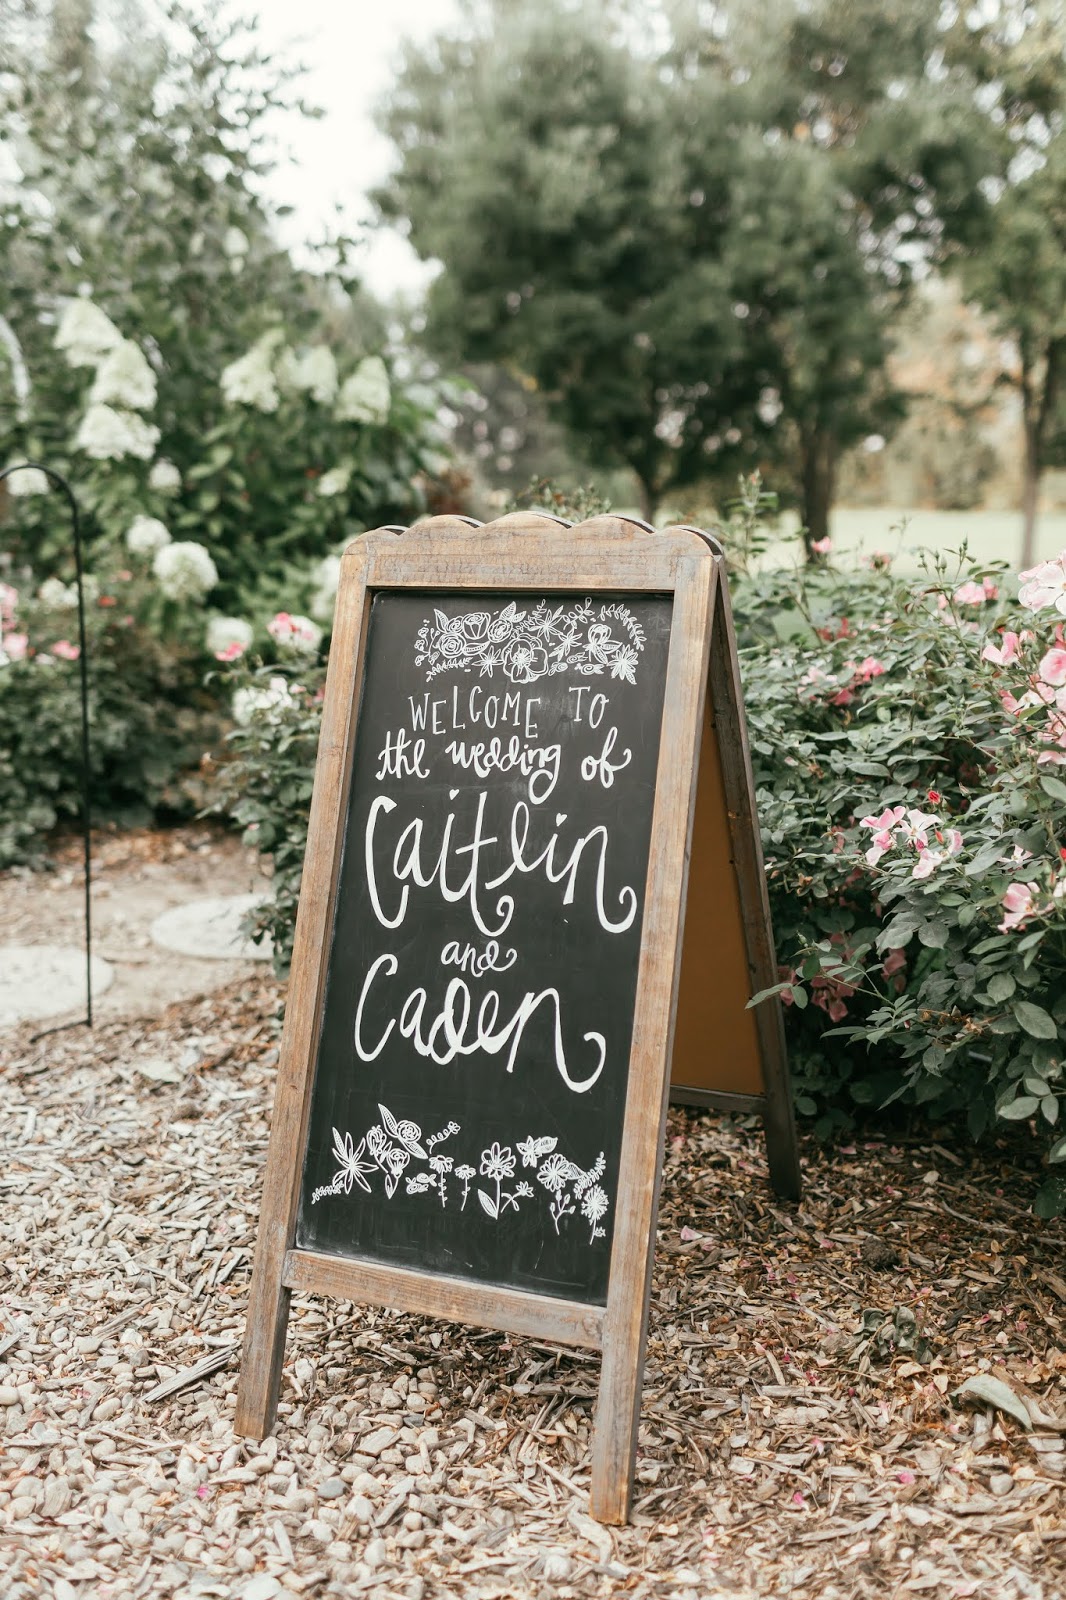 WELCOME TO
the wedding of
Caitlin
and
Caden